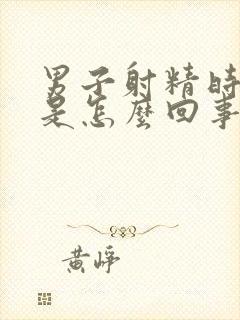 男子射精時
是怎麼回事
黄崢